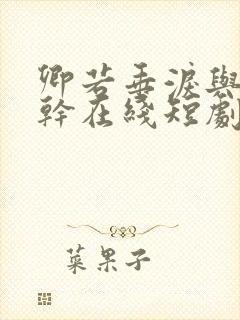 卿若垂淚與
幹在綫短劇
菜果子